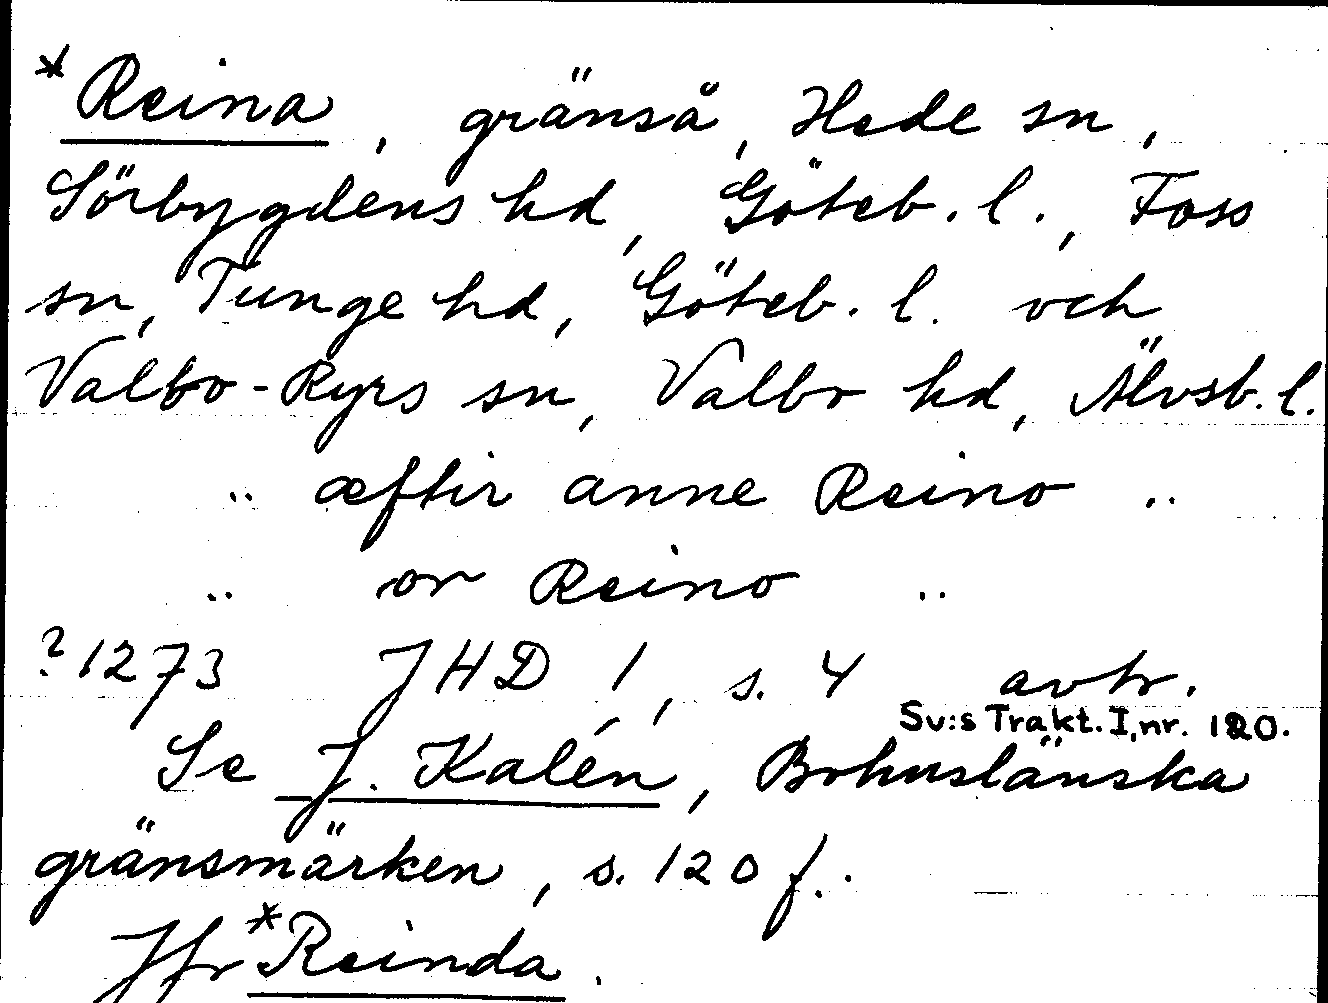 *Reina, gränså, Hede sn,
Sörbygdens hd, Göteb. l., Foss
sn, Tunge hd, Göteb. l. och
Valbo-Ryrs sn, Valbo hd, Älvsb. l.
.. æftir anne Reino ..
.. or Reino ..
?1273 JHD 1, s. 4 avtr.
Sv:s Trakt. I, nr. 120.
Se J. Kalén, Bohuslänska
gränsmärken, s. 120 f..
Jfr *Reinda.